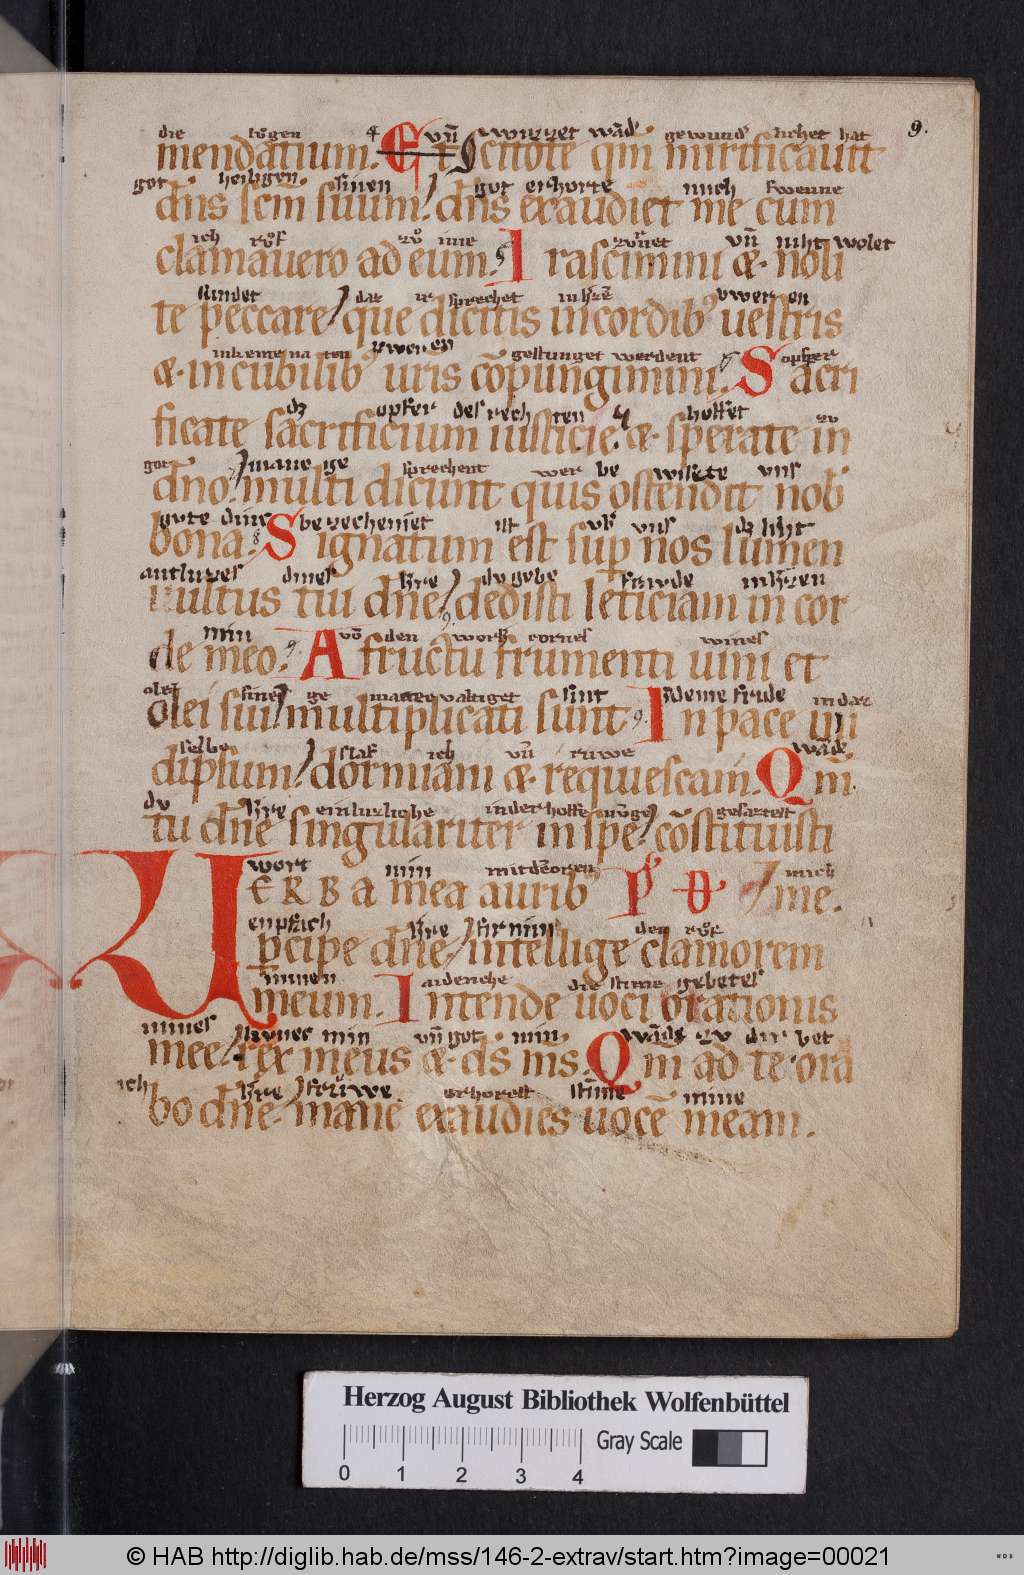 9.
die lŏgen 4 vn̄ wizzet wād gewund lichet hat
mendatium. Et Scitote qm̄ mirificauit
got heiligen sinen got erhorte mich swenne
dn̄s scm̄ suum. dn̄s exaudiet me cum
ich rŏf zŏ ime zurnet vn̄ niht wolet
clamauero ad eum. Irascimini &. noli
sundet daz ir sprechet
te peccare que dicitis in cordib; uestris
gestunget werdent opfer
&. in cubilib; uris cōpungimini. Sacri
dz opfer des rechten hoffet zv
ficate sacrificium iusticie. &. sperate in
got mane ge sprechent wer be wisete vns
dn̄o. multi dicunt quis ostendit nob̄
gvte dinc bezecheniet ist vb̄ vns dz liht
bona. Signatum est sup nos lumen
antluzes dines h̄re dv gebe
uultus tui dn̄e dedisti leticiam in cor
min vō den worh cornes wines
de meo. A fructu frumenti uini et
oleis sines ge manecvaltiget sint
olei sui multiplicati sunt In pace in
selbe slaf ich vn̄ ruwe wāde
dipsum dormiam &. requiescam. Qm̄
dv h̄re einluzliche
tu dn̄e singulariter in spe cōstituisti
wort min mich
UERBA mea aurib; me.
enpfach h̄re den rŏf
pcipe dn̄e intellige clamorem
minen die stime gebetes
meum. Intende uoci orationis
mines min vn̄ got min wāde zv dir bet
mee rex meus &. ds̄ ms̄. Qm̄ ad te ora
ich h̄re frŭwe erhorest stime mine
bo dn̄e mane exaudies uocē meam.
Herzog August Bibliothek Wolfenbüttel
Gray Scale
0 1 2 3 4
© HAB http://diglib.hab.de/mss/146-2-extrav/start.htm?image=00021